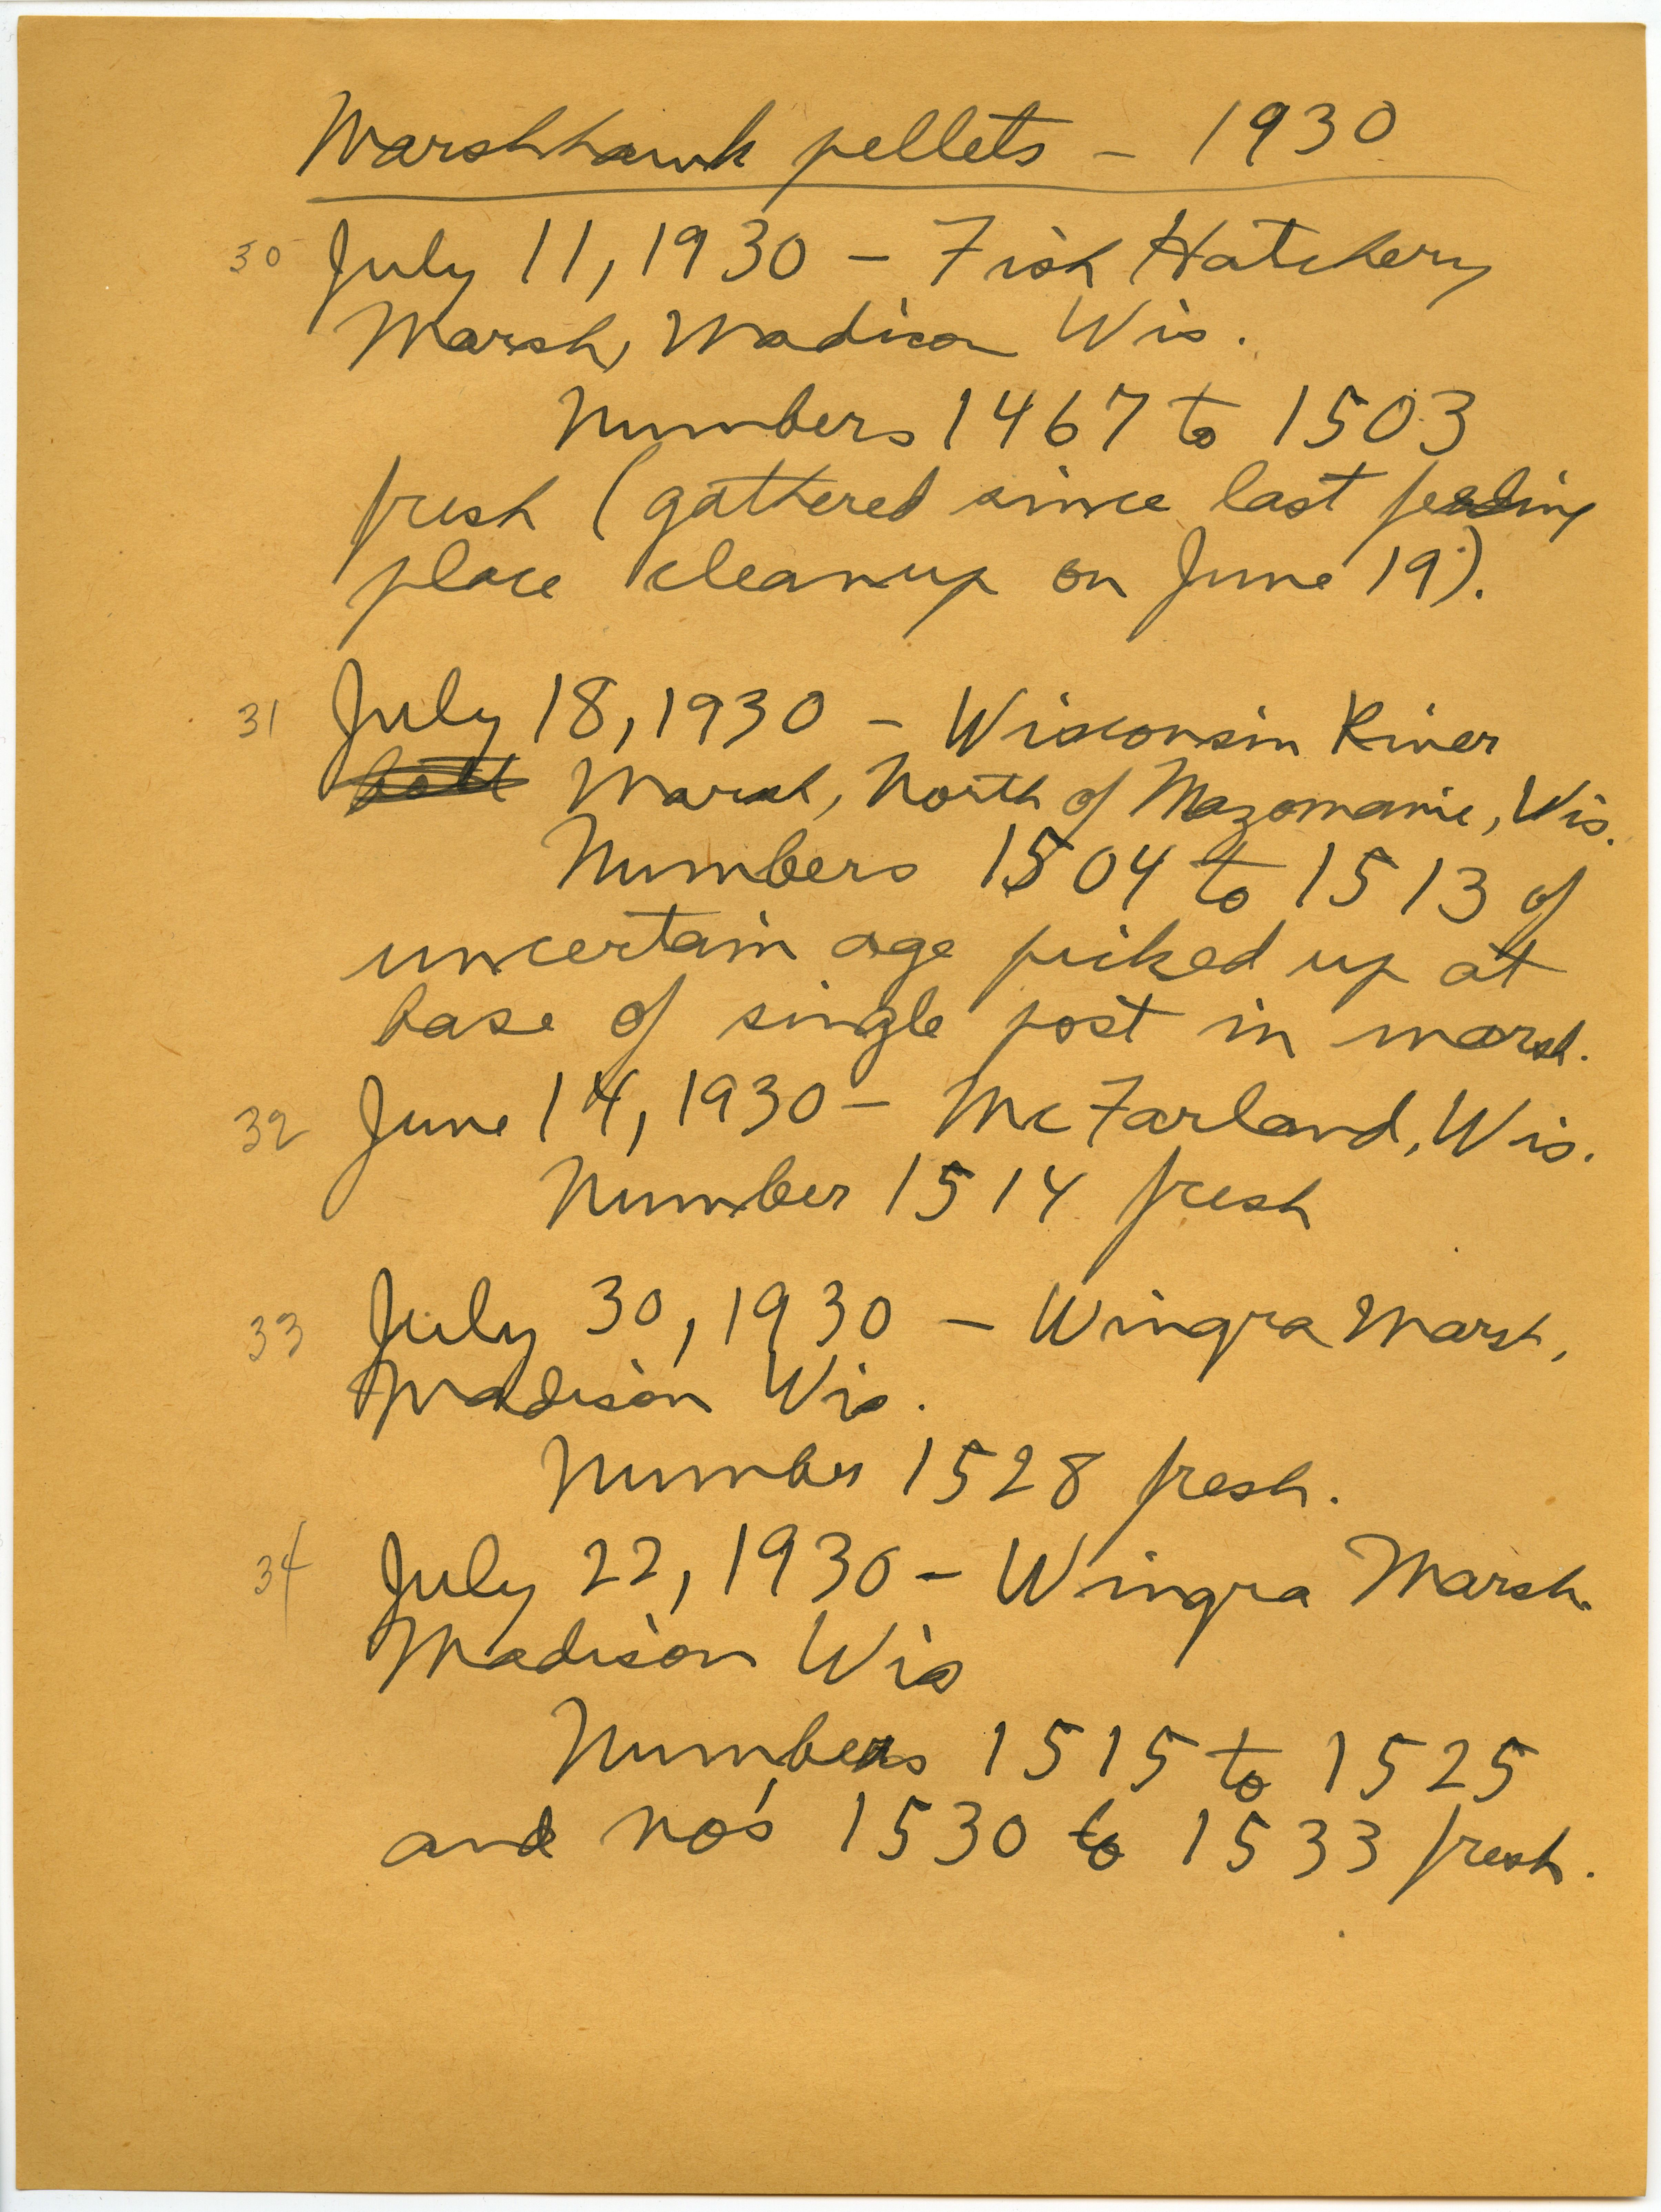 Marshhawk pellets - 1930
30 July 11, 1930 - Fish Hatchery
Marsh, Madison Wis.
Numbers 1467 to 1503
fresh (gathered since last feeding
place cleanup on June 19).
31 July 18, 1930 - Wisconsin River
Marsh, North of Mazomanie, Wis.
Numbers 1504 to 1513 of
uncertain age picked up at
base of single post in marsh.
32 June 14, 1930 - McFarland, Wis.
Number 1514 fresh
33 July 30, 1930 - Wingra Marsh,
Madison Wis.
Number 1528 fresh.
34 July 22, 1930 - Wingra Marsh.
Madison Wis
Numbers 1515 to 1525
and no's 1530 to 1533 fresh.